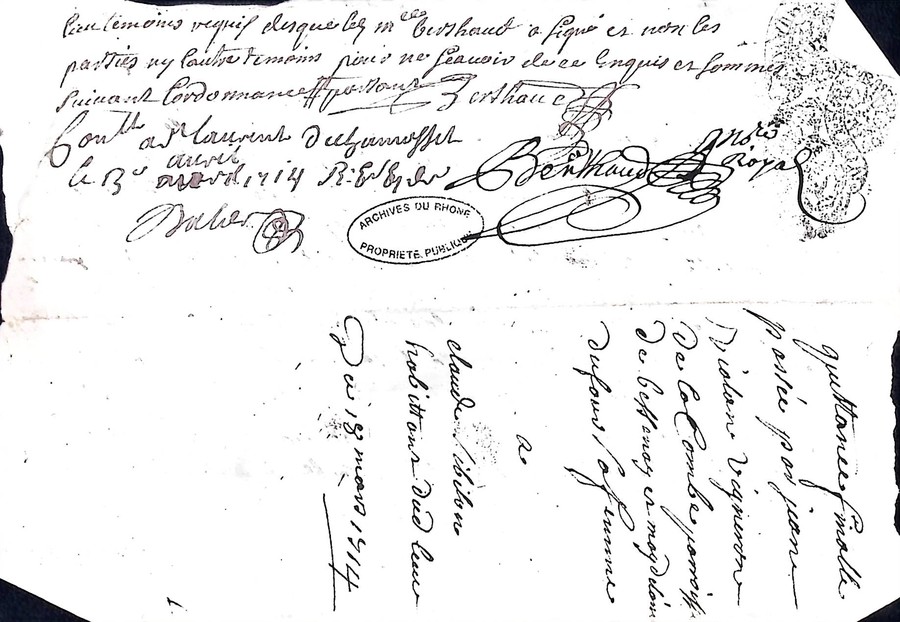 temoins requis desquels led mre berthaud a signé et non les
parties ny lautre temoins pour ne scavoir de ce Enquis et sommes
suivant Lordonnance Berthaud
Conllé a St laurent dechamosset
le 13e avril 1714 R.
Berthaud Notre Royal
ARCHIVES DU RHONE
PROPRIETE PUBLIQUE
quittance finalle
passée par jeane
vigneron
de la Combe parroisse
de bessenay et magdelaine
dufour sa femme
a
claude
habittans dud lieu
Du 18 mars 1714